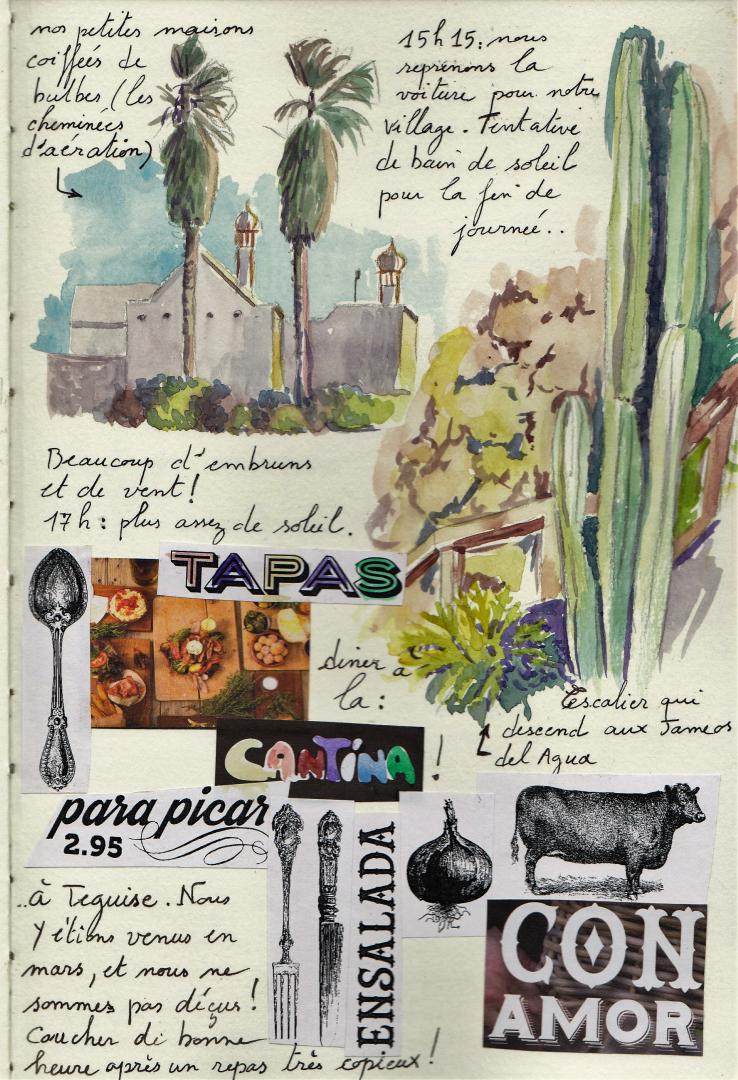 nos petites maisons
coiffées de
bulbes (les
cheminées
d'aération)
15h15: nous
reprenons la
voiture pour notre
village. Tentative
de bain de soleil
pour la fin de
journée..
Beaucoup d'embruns
et de vent!
17h: plus assez de soleil.
TAPAS
diner à
la:
CANTINA !
Escalier qui
descend aux Jameos
del Agua
para picar
2.95
ENSALADA
CON
AMOR
..à Teguise. Nous
y étions venus en
mars, et nous ne
sommes pas déçus!
Coucher de bonne
heure après un repas très copieux!